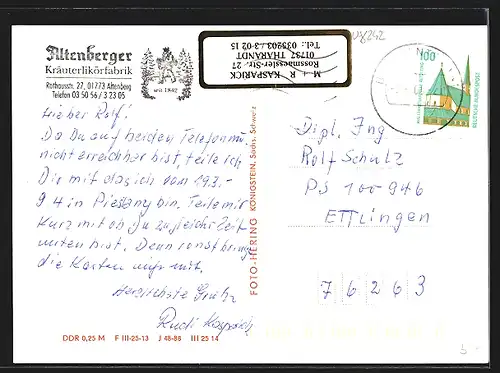 Altenberger
Kräuterlikörfabrik
Rathausstr. 27, 01773 Altenberg
Telefon 03 50 56 / 3 23 05
seit 1842
M + R KASPARICK
Rossmaessler-Str. 27
01737 THARANDT
Tel.: 035203 / 3 02 15
100
DEUTSCHE BUNDESPOST
Lieber Rolf!
Da Du auf beiden Telefonnu.
nicht erreichbar bist, teile ich
Dir mit das ich vom 19.3.-
94 in Piestany bin. Teile mir
kurz mit ob Du zu gleicher Zeit
unten bist. Denn sonst bringe
die Karten nichts mit.
Herzlichste Grüße
Rudi Kasparick
FOTO-HERING KÖNIGSTEIN, Sächs. Schweiz
Dipl. Ing
Rolf Schulz
PS 100 946
ETTlingen
76263
DDR 0,25 M F III-25-13 J 48-88 III 25 14